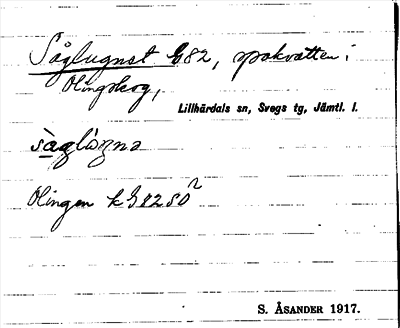 Såglugnet E82, spakvatten i
Olingskog,
Lillhärdals sn, Svegs tg, Jämtl. l.
Olingen k
S. ÅSANDER 1917.